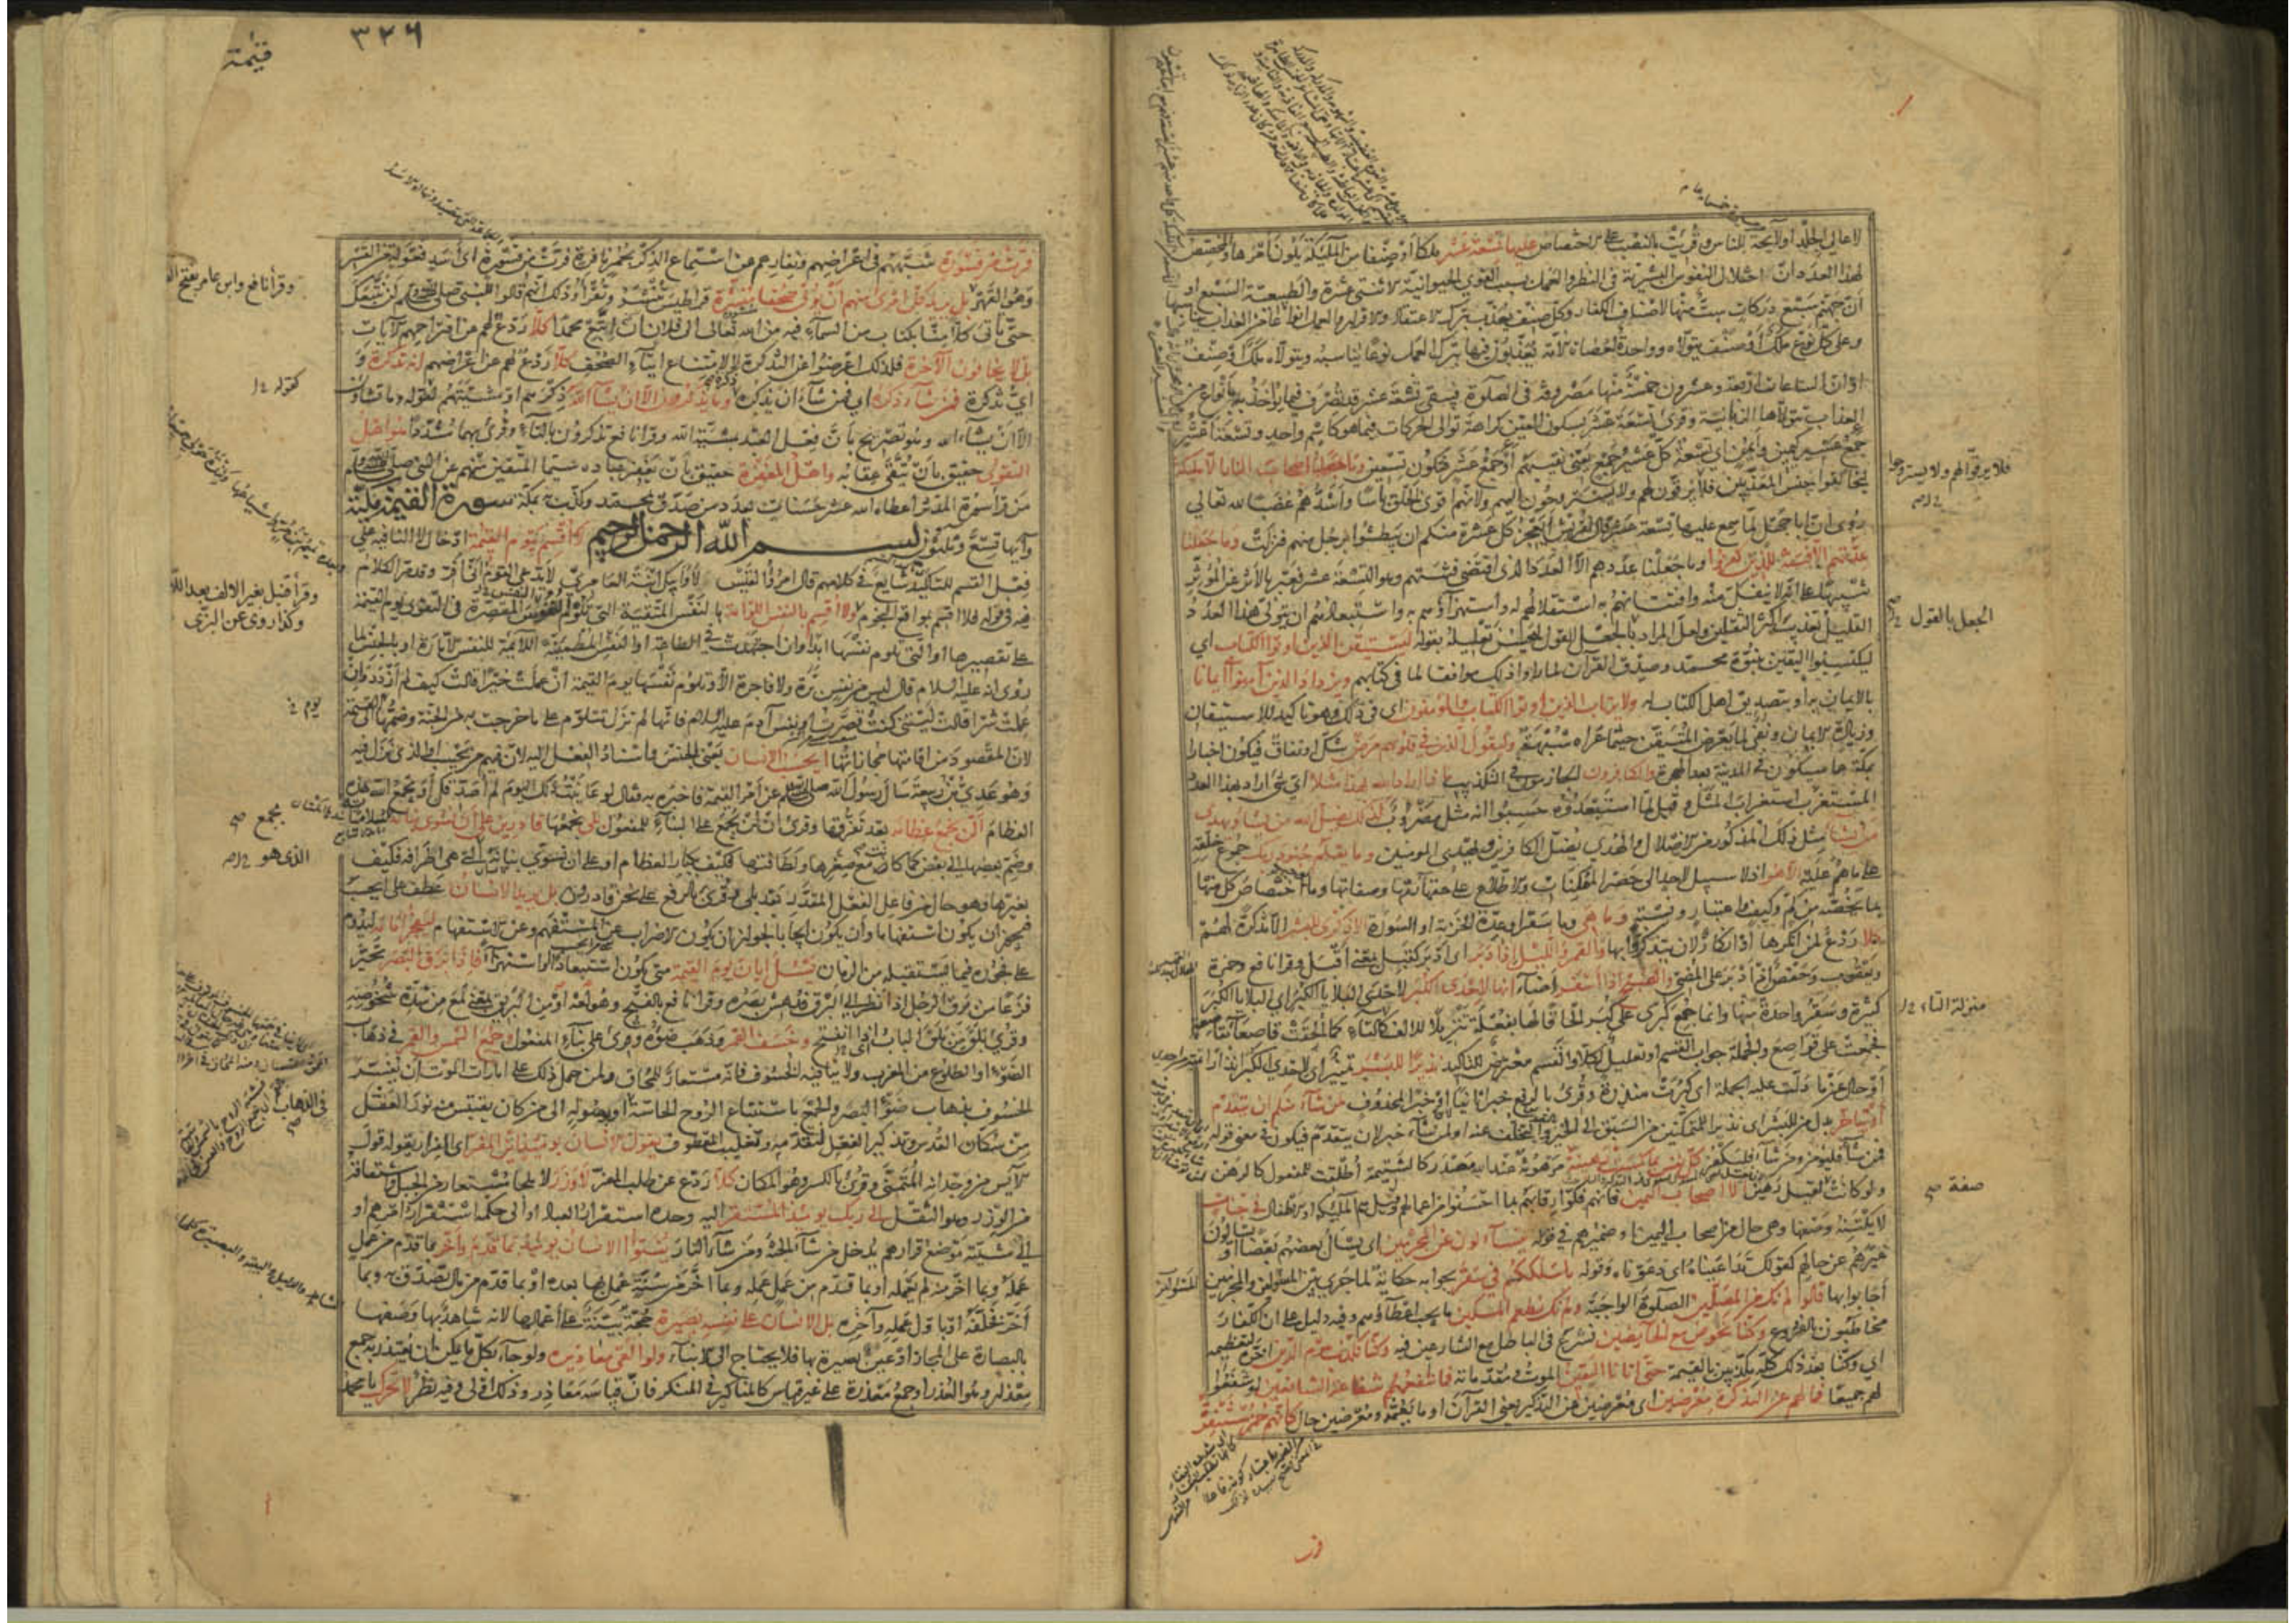 لاعالي الجلد او لايحة للناس وقريت بالنصب على الاختصاص عليها تسعة عشر ملكا او صنفا من الملئكة يلون امرها والمخصص
لهذا العدد ان اختلال النفوس البشرية في النظر والعمل بسبب القوى الحيوانية الاثنتى عشرة والطبيعية السبع او
ان جهنم سبع دركات ست منها لاصناف الكفار وكل صنف يعذب بترك الاعتقاد والاقرار والعمل انواعا من العذاب
وعلى كل نوع ملك او صنف يتولاه وواحدة لعصاة الامة يعذبون فيها بترك العمل نوعا يناسبه ويتولاه ملك او صنف
او ان الساعات اربعة وعشرون خمسة منها مصروفة في الصلوة فيبقى تسعة عشر قد تصرف فيما يواخذ به بانواع من
العذاب يتولاها الزبانية وقرئ تسعة عشر بسكون العين كراهة توالى الحركات فيما هو كاسم واحد وتسعة اعشر
جمع عشير كيمين وايمن اى تسعة كل عشير جمع يعنى نقيبهم او جمع عشر فتكون تسعين وما جعلنا اصحاب النار الا ملئكة
ليخالفوا جنس المعذبين فلا يرقون لهم ولا يستروحون اليهم ولانهم اقوى الخلق باسا واشدهم غضبا لله تعالى
روى ان ابا جهل لما سمع عليها تسعة عشر قال لقريش ايعجز كل عشرة منكم ان يبطشوا برجل منهم فنزلت وما جعلنا
عدتهم الا فتنة للذين كفروا وما جعلنا عددهم الا العدد الذى اقتضى فتنتهم وهو التسعة عشر فعبر بالاثر عن المؤثر
تنبيها على انه لا ينفك منه وافتتانهم به استقلالهم له واستهزاؤهم به واستبعادهم ان يتولى هذا العدد
القليل تعذيب اكثر الثقلين ولعل المراد بالجعل القول ليحسن تعليله بقوله ليستيقن الذين اوتوا الكتاب اى
ليكتسبوا اليقين بنبوة محمد وصدق القرآن لما راوا ذلك موافقا لما في كتابهم ويزداد الذين آمنوا ايمانا
بالايمان به او بتصديق اهل الكتاب له ولا يرتاب الذين اوتوا الكتاب والمؤمنون اى في ذلك وهو تاكيد للاستيقان
وزيادة الايمان ونفى لما يعرض للمتيقن حيثما عراه شبهة وليقول الذين في قلوبهم مرض شك او نفاق فيكون اخبارا
بمكة عما سيكون في المدينة بعد الهجرة والكافرون الجازمون في التكذيب ماذا اراد الله بهذا مثلا اى شئ اراد بهذا العدد
المستغرب استغراب المثل وقيل لما استبعدوه حسبوا انه مثل مضروب كذلك يضل الله من يشاء ويهدى
من يشاء مثل ذلك المذكور من الاضلال والهدى يضل الكافرين ويهدى المومنين وما يعلم جنود ربك جموع خلقه
على ما هم عليه الا هو اذ لا سبيل لاحد الى حصر الممكنات والاطلاع على حقايقها وصفاتها وما اختصاص كل منها
بما يخصه من كم وكيف واعتبار ونسبة وما هى وما سقر او عدة الخزنة او السورة الا ذكرى للبشر الا تذكرة لهم
كلا ردع لمن انكرها او انكار لان يتذكروا بها والقمر والليل اذا دبر اى ادبر كقبل بمعنى اقبل وقرا نافع وحمزة
ويعقوب وحفص اذ ادبر على المضى والصبح اذا اسفر اضاء انها لاحدى الكبر لاحدى البلايا الكبر اى البلايا الكبر
كثيرة وسقر واحدة منها وانما جمع كبرى على كبر الحاقا لها بفعلة تنزيلا للالف كالتاء كما الحقت قاصعاء بقاصعة
فجمعت على قواصع والجملة جواب القسم او تعليل لكلا والقسم معترض للتاكيد نذيرا للبشر تمييز اى لاحدى الكبر انذارا
او حال عما دلت عليه الجملة اى كبرت منذرة وقرئ بالرفع خبرا ثانيا او خبرا لمحذوف لمن شاء منكم ان يتقدم
او يتاخر بدل من للبشر اى نذيرا للمتمكنين من السبق الى الخير والتخلف عنه او لمن شاء خبر لان يتقدم فيكون في معنى قوله
فمن شاء فليؤمن ومن شاء فليكفر كل نفس بما كسبت رهينة مرهونة عند الله مصدر كالشتيمة اطلقت للمفعول كالرهن
ولو كانت لقيل رهين الا اصحاب اليمين فانهم فكوا رقابهم بما احسنوا من اعمالهم وقيل هم الملئكة او الاطفال في جنات
لا يكتنه وصفها وهى حال من اصحاب اليمين او ضميرهم في قوله يتساءلون عن المجرمين اى يسال بعضهم بعضا او يسالون
غيرهم عن حالهم كقولك تداعيناه اى دعوناه وقوله ما سلككم في سقر بجوابه حكاية لما جرى بين المسئولين والمجرمين
اجابوا بها قالوا لم نك من المصلين الصلوة الواجبة ولم نك نطعم المسكين ما يجب اعطاؤهم وفيه دليل على ان الكفار
مخاطبون بالفروع وكنا نخوض مع الخايضين نشرع في الباطل مع الشارعين فيه وكنا نكذب بيوم الدين اخره لتعظيمه
اى وكنا بعد ذلك كله مكذبين بالقيمة حتى اتانا اليقين الموت ومقدماته فما تنفعهم شفاعة الشافعين لو شفعوا
لهم جميعا فما لهم عن التذكرة معرضين اى معرضين عن التذكير يعنى القرآن او ما يعمه ومعرضين حال كانهم حمر مستنفرة
فلا يرقوا لهم ولا يستروحوا
الجعل بالقول
منزلة التاء
صفة
٣٢٦
قيمة
فرت من قسورة شبههم في اعراضهم ونفارهم عن استماع الذكر بحمر نافرة فرت من قسورة اى اسد فعولة من القسر
وهو القهر بل يريد كل امرئ منهم ان يؤتى صحفا منشرة قراطيس تنشر وتقرأ وذلك انهم قالوا للنبى صلى الله عليه وسلم لن نتبعك
حتى تاتى كلا منا بكتاب من السماء فيه من الله تعالى الى فلان ان اتبع محمدا كلا ردع لهم عن اقتراحهم الآيات
بل لا يخافون الآخرة فلذلك اعرضوا عن التذكرة لا لامتناع ايتاء الصحف كلا ردع لهم عن اعراضهم انه تذكرة و
اى تذكرة فمن شاء ذكره اى فمن شاء ان يذكره وما يذكرون الا ان يشاء الله ذكرهم او مشيتهم لقوله وما تشاؤن
الا ان يشاء الله وهو تصريح بان فعل العبد بمشية الله وقرا نافع تذكرون بالتاء وقرئ بهما مشددا هو اهل
التقوى حقيق بان يتقى عقابه واهل المغفرة حقيق بان يغفر عباده سيما المتقين منهم عن النبى صلى الله عليه وسلم
من قرا سورة المدثر اعطاه الله عشر حسنات بعدد من صدق بمحمد وكذب به بمكة سورة القيمة مكية
وآيها تسع وثلثون بسم الله الرحمن الرحيم لا اقسم بيوم القيمة ادخال لا النافية على
فعل القسم للتاكيد شايع في كلامهم قال امرؤ القيس لا وابيك ابنة العامرى لا يدعى القوم انى افر وقد مر الكلام
فيه في قوله فلا اقسم بمواقع النجوم ولا اقسم بالنفس اللوامة بالنفس المتقية التى تلوم النفوس المقصرة في التقوى يوم القيمة
على تقصيرها او التى تلوم نفسها ابدا وان اجتهدت في الطاعة او النفس المطمئنة اللائمة للنفس الامارة او بالجنس لما
روى انه عليه السلام قال ليس من نفس برة ولا فاجرة الا وتلوم نفسها يوم القيمة ان عملت خيرا قالت كيف لم ازدد وان
عملت شرا قالت ليتنى كنت قصرت او نفس آدم عليه السلام فانها لم تزل تتلوم على ما خرجت به من الجنة وضمها الى القيمة
لان المقصود من اقامتها مجازاتها ايحسب الانسان يعنى الجنس واسناد الفعل اليه لان فيهم من يحسب او الذى نزل فيه
وهو عدى بن ربيعة سال رسول الله صلى الله عليه وسلم عن امر القيمة فاخبره به فقال لو عاينت ذلك اليوم لم اصدقك او يجمع الله هذه
العظام الن نجمع عظامه بعد تفرقها وقرئ ان لن يجمع على البناء للمفعول بلى نجمعها قادرين على ان نسوى بنانه
وضم بعضها الى بعض كما كانت مع صغرها ولطافتها فكيف بكبار العظام او على ان نسوى بنانه الذى هى اطرافه فكيف
بغيرها وهو حال من فاعل الفعل المقدر بعد بلى وقرئ بالرفع على نحن قادرون بل يريد الانسان عطف على ايحسب
فيجوز ان يكون استفهاما وان يكون ايجابا لجواز ان يكون الاضراب عن المستفهم وعن الاستفهام ليفجر امامه ليدوم
على فجوره فيما يستقبله من الزمان يسئل ايان يوم القيمة متى يكون استبعادا او استهزاء فاذا برق البصر تحير
فزعا من برق الرجل اذا نظر الى البرق فدهش بصره وقرا نافع بالفتح وهو لغة او من البريق بمعنى لمع من شدة شخوصه
وقرئ بلق من بلق الباب اذا انفتح وخسف القمر وذهب ضوؤه وقرئ على بناء المفعول وجمع الشمس والقمر في ذهاب
الضوء او الطلوع من المغرب ولا ينافيه الخسوف فانه مستعار للمحاق ولمن حمل ذلك على امارات الموت ان يفسر
الخسوف بذهاب ضوء البصر والجمع باستتباع الروح الحاسة او بوصوله الى من كان يقتبس منه نور العقل
من سكان القدس وتذكير الفعل لتقدمه وتغليب المعطوف يقول الانسان يومئذ اين المفر اى الفرار يقوله قول
الآيس من وجدانه المتمنى وقرئ بالكسر وهو المكان كلا ردع عن طلب المفر لا وزر لا ملجا مستعار من الجبل واشتقاقه
من الوزر وهو الثقل الى ربك يومئذ المستقر اليه وحده استقرار العباد او الى حكمه استقرار امرهم او
الى مشيته موضع قرارهم يدخل من شاء الجنة ومن شاء النار ينبئوا الانسان يومئذ بما قدم واخر بما قدم من عمل
عمله وبما اخر منه لم يعمله او بما قدم من عمل عمله وبما اخر من سنة عمل بها بعده او بما قدم من مال تصدق به وبما
اخر فخلفه او باول عمله وآخره بل الانسان على نفسه بصيرة حجة بينة على اعمالها لانه شاهد بها وصفها
بالبصارة على المجاز او عين بصيرة بها فلا يحتاج الى الانباء ولو القى معاذيره ولو جاء بكل ما يمكن ان يعتذر به جمع
معذار وهو العذر او جمع معذرة على غير قياس كالمناكير في المنكر فان قياسه معاذر وذلك اولى وفيه نظر لا تحرك يا محمد
وقرأ نافع وابن عامر بفتح
كقوله
وقرأ قنبل بغير الالف بعد اللا
وكذا روى عن البزى
يوم
يجمع
الذى هو
في الذهاب